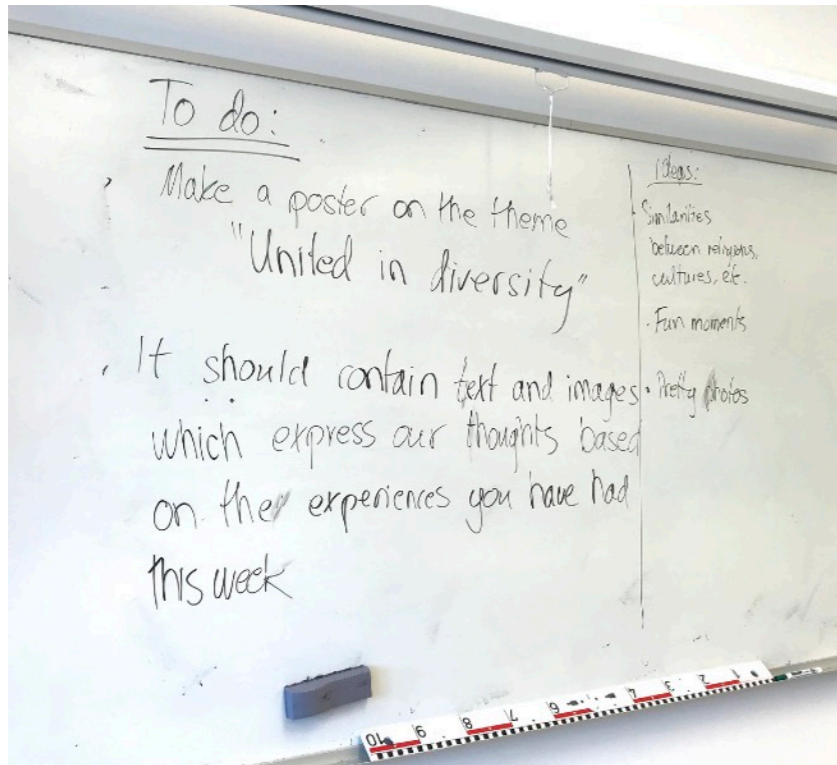 To do:
Make a poster on the theme
"United in diversity"
· It should contain text and images
which express our thoughts based
on the experiences you have had
this week
Ideas:
· Similarities
between religions,
cultures, etc.
· Fun moments
· Pretty photos
10 9 8 7 6 5 4 3 2 1